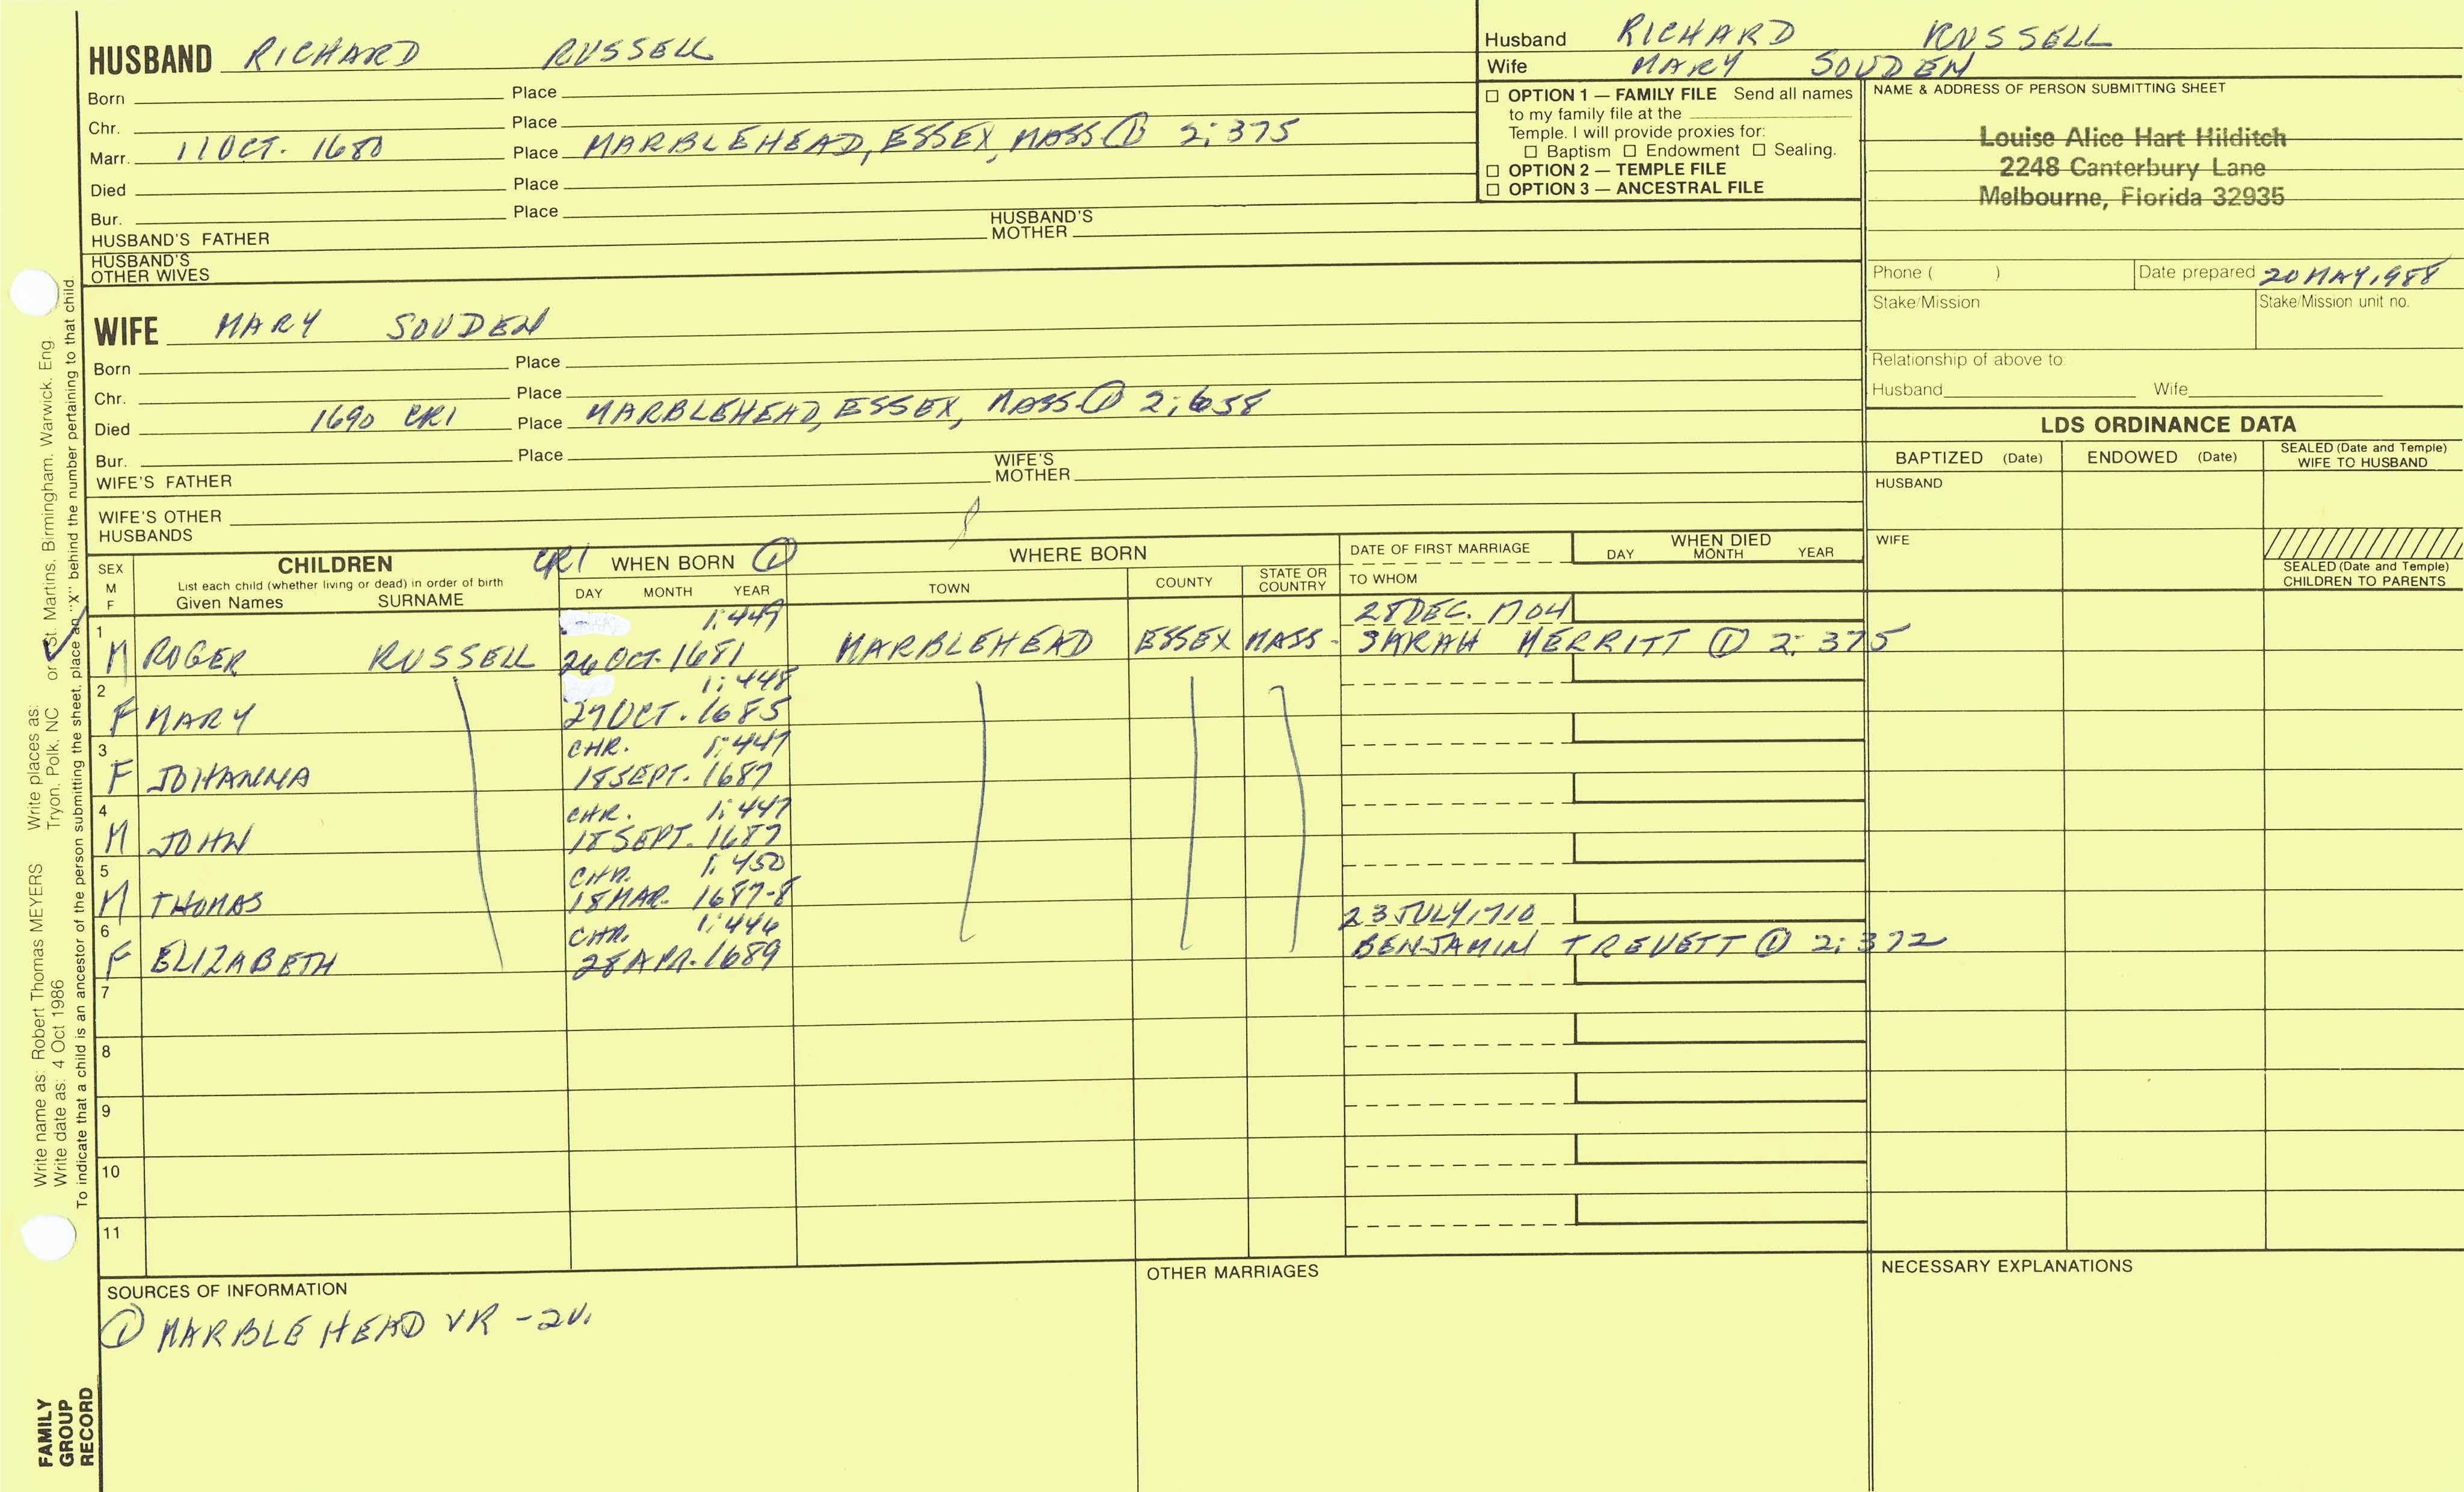 HUSBAND RICHARD RUSSELL
Born Place
Chr. Place
Marr. 11 OCT. 1680 Place MARBLEHEAD, ESSEX, MASS ① 2:375
Died Place
Bur. Place
HUSBAND'S FATHER HUSBAND'S MOTHER
HUSBAND'S OTHER WIVES
Husband RICHARD RUSSELL
Wife MARY SOUDEN
☐ OPTION 1 — FAMILY FILE Send all names
to my family file at the
Temple. I will provide proxies for:
☐ Baptism ☐ Endowment ☐ Sealing.
☐ OPTION 2 — TEMPLE FILE
☐ OPTION 3 — ANCESTRAL FILE
NAME & ADDRESS OF PERSON SUBMITTING SHEET
Louise Alice Hart Hilditch
2248 Canterbury Lane
Melbourne, Florida 32935
Phone ( ) Date prepared 20 MAY 1988
Stake/Mission Stake/Mission unit no.
Relationship of above to:
Husband Wife
WIFE MARY SOUDEN
Born Place
Chr. Place
Died 1690 CR1 Place MARBLEHEAD, ESSEX, MASS ① 2:658
Bur. Place
WIFE'S FATHER WIFE'S MOTHER
WIFE'S OTHER HUSBANDS
LDS ORDINANCE DATA
BAPTIZED (Date) ENDOWED (Date) SEALED (Date and Temple) WIFE TO HUSBAND
HUSBAND
WIFE
SEALED (Date and Temple) CHILDREN TO PARENTS
SEX M F
CHILDREN
List each child (whether living or dead) in order of birth
Given Names SURNAME
CR1 WHEN BORN ①
DAY MONTH YEAR
WHERE BORN
TOWN COUNTY STATE OR COUNTRY
DATE OF FIRST MARRIAGE
TO WHOM
WHEN DIED
DAY MONTH YEAR
1 1:449 28 DEC. 1704
M ROGER RUSSELL 26 OCT. 1681 MARBLEHEAD ESSEX MASS- SARAH MERRITT ① 2:375
2 1:448
F MARY 27 OCT. 1685
3 CHR. 1:447
F JOHANNA 18 SEPT. 1687
4 CHR. 1:447
M JOHN 18 SEPT. 1687
5 CHR. 1:450
M THOMAS 18 MAR. 1687-8
6 CHR. 1:446 23 JULY 1710
F ELIZABETH 28 APR. 1689 BENJAMIN TREVETT ① 2:372
7
8
9
10
11
SOURCES OF INFORMATION
① MARBLEHEAD VR -2V.
OTHER MARRIAGES
NECESSARY EXPLANATIONS
Write name as: Robert Thomas MEYERS Write places as:
Write date as: 4 Oct 1986 Tryon, Polk, NC or St. Martins, Birmingham, Warwick, Eng
To indicate that a child is an ancestor of the person submitting the sheet, place an "X" behind the number pertaining to that child.
FAMILY
GROUP
RECORD